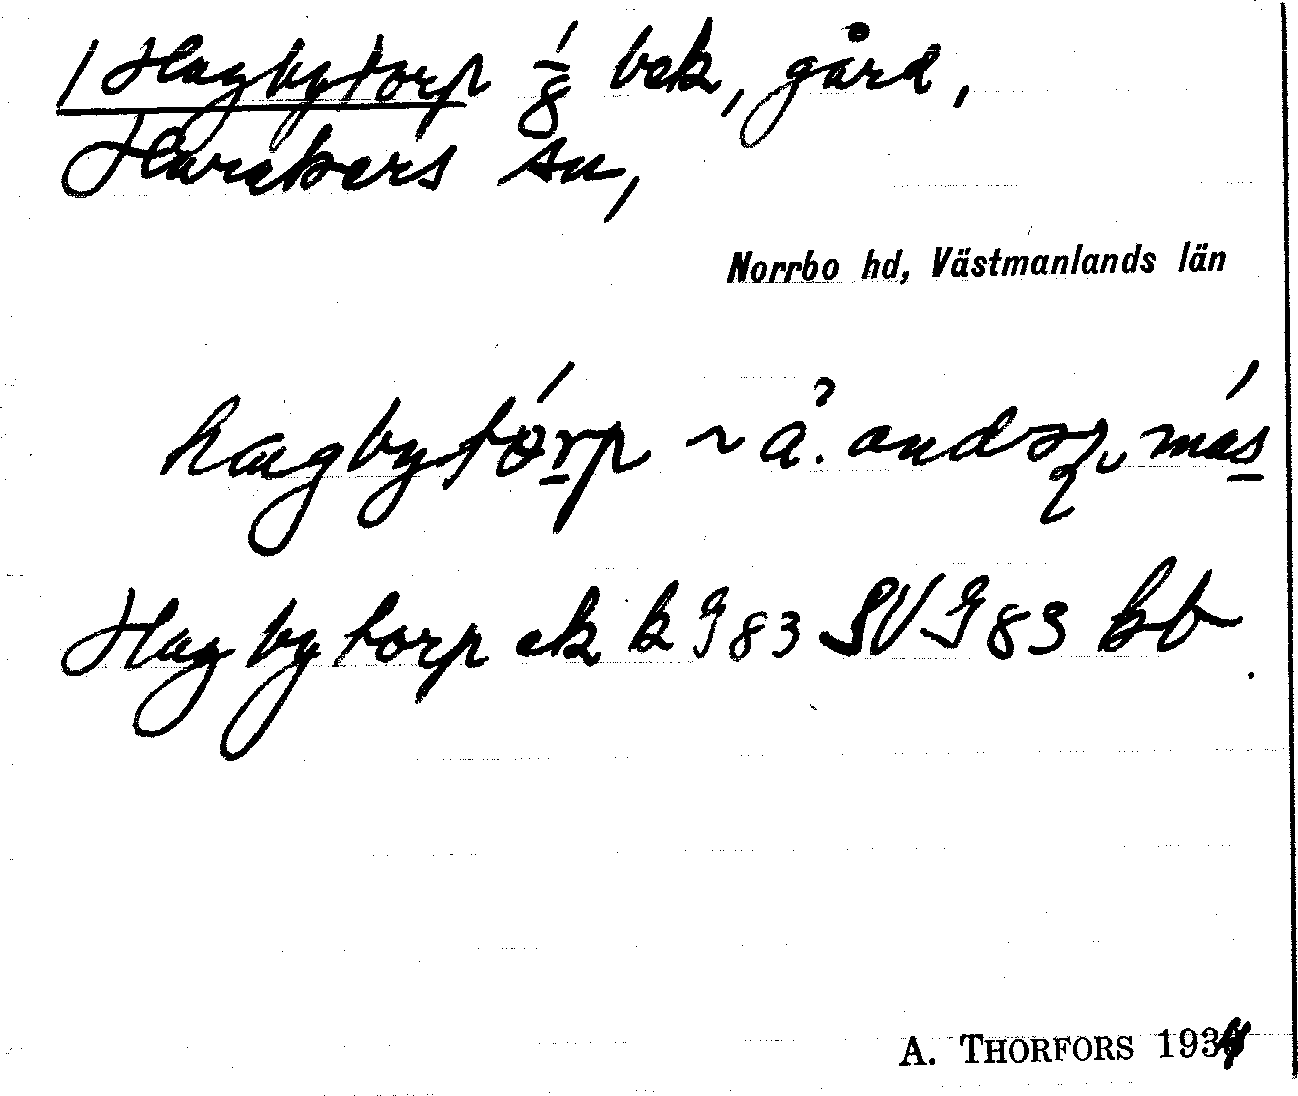 / Hagbytorp ⅛ bek, gård,
Harakers sn,
Norrbo hd, Västmanlands län
hagbytórp ~ å.
Hagbytorp ek k G 83 SV G 83 bb
A. THORFORS 1934